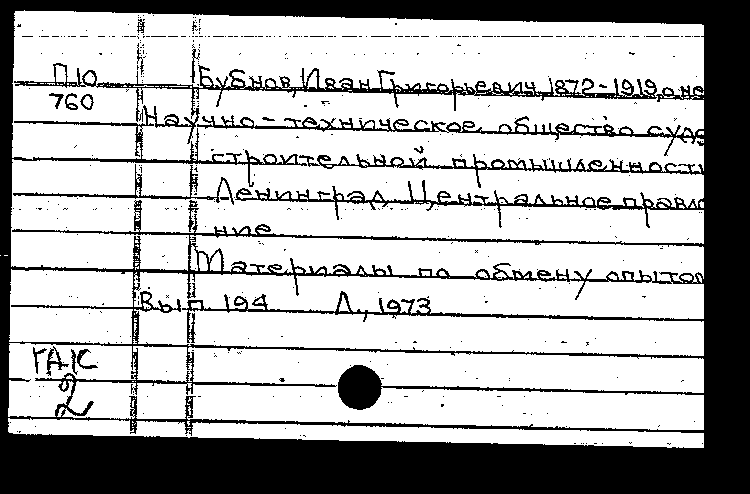 П10
760
Бубнов, Иван Григорьевич, 1872-1919, о не
Научно-техническое общество судо
строительной промышленности
Ленинград Центральное правле
ние
Материалы по обмену опытом
Вып 194 Л., 1973
ГАК
2